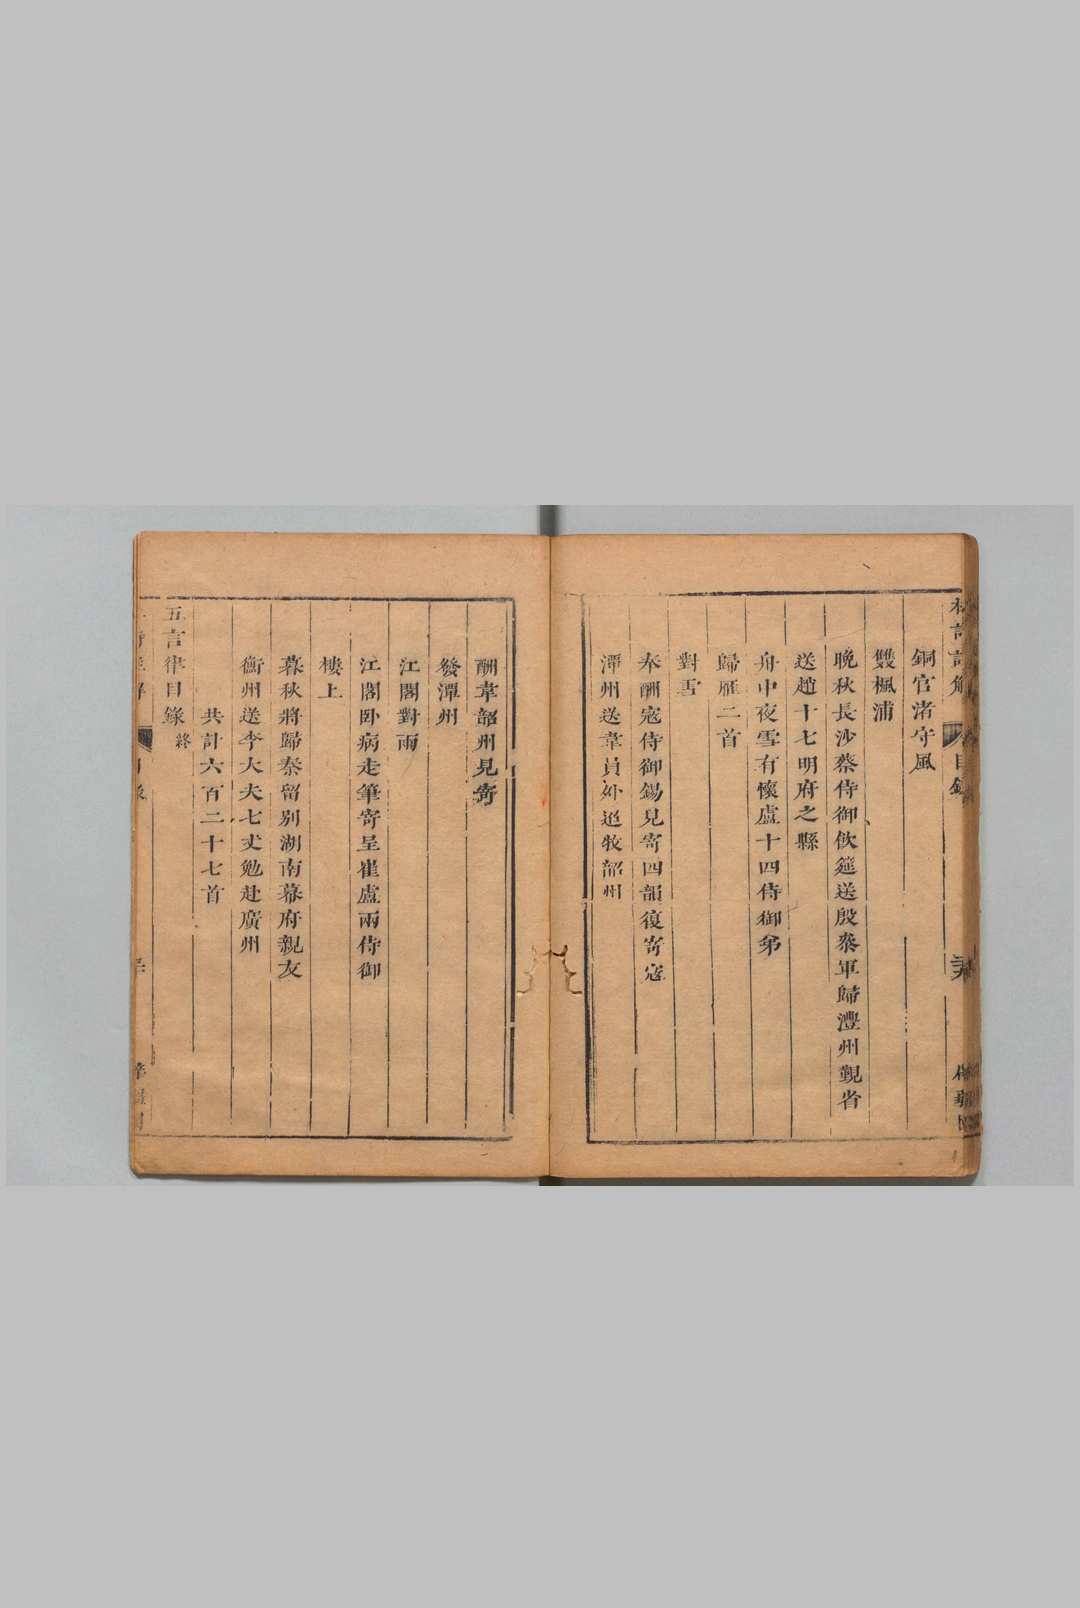 銅官渚守風
雙楓浦
晚秋長沙蔡侍御飲筵送殷參軍歸澧州覲省
送趙十七明府之縣
舟中夜雪有懷盧十四侍御弟
歸雁二首
對雪
奉酬寇侍御錫見寄四韻復寄寇
潭州送韋員外迢牧韶州
酬韋韶州見寄
發潭州
江閣對雨
江閣卧病走筆寄呈崔盧兩侍御
樓上
暮秋將歸秦留别湖南幕府親友
衡州送李大夫七丈勉赴廣州
共計六百二十七首
五言律目錄終